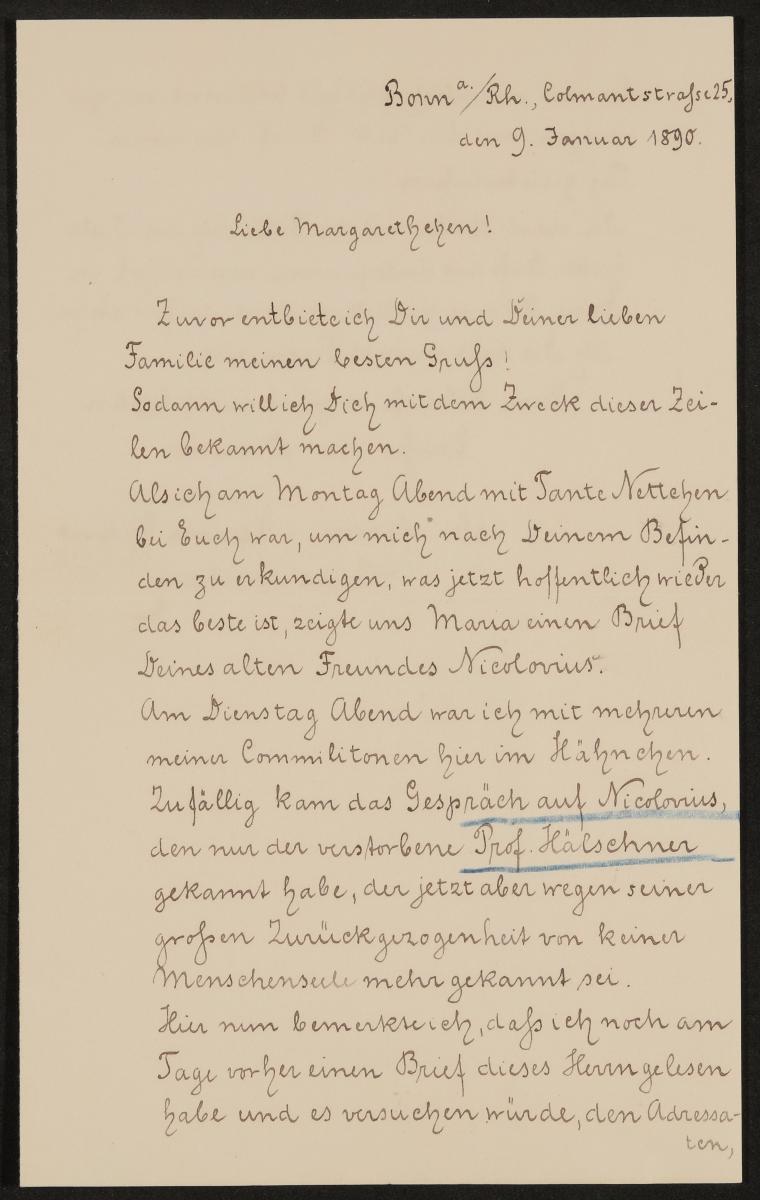 Bonn a./Rh., Colmantstraße 25,
den 9. Januar 1890.
Liebe Margarethchen!
Zuvor entbiete ich Dir und Deiner lieben
Familie meinen besten Gruß!
Sodann will ich Dich mit dem Zweck dieser Zei-
len bekannt machen.
Als ich am Montag Abend mit Tante Nettchen
bei Euch war, um mich nach Deinem Befin-
den zu erkundigen, was jetzt hoffentlich wieder
das beste ist, zeigte uns Maria einen Brief
Deines alten Freundes Nicolovius.
Am Dienstag Abend war ich mit mehreren
meiner Commilitonen hier im Hähnchen.
Zufällig kam das Gespräch auf Nicolovius,
den nur der verstorbene Prof. Hälschner
gekannt habe, der jetzt aber wegen seiner
großen Zurückgezogenheit von keiner
Menschenseele mehr gekannt sei.
Hier nun bemerkte ich, daß ich noch am
Tage vorher einen Brief dieses Herrn gelesen
habe und es versuchen würde, den Adressa-
ten,